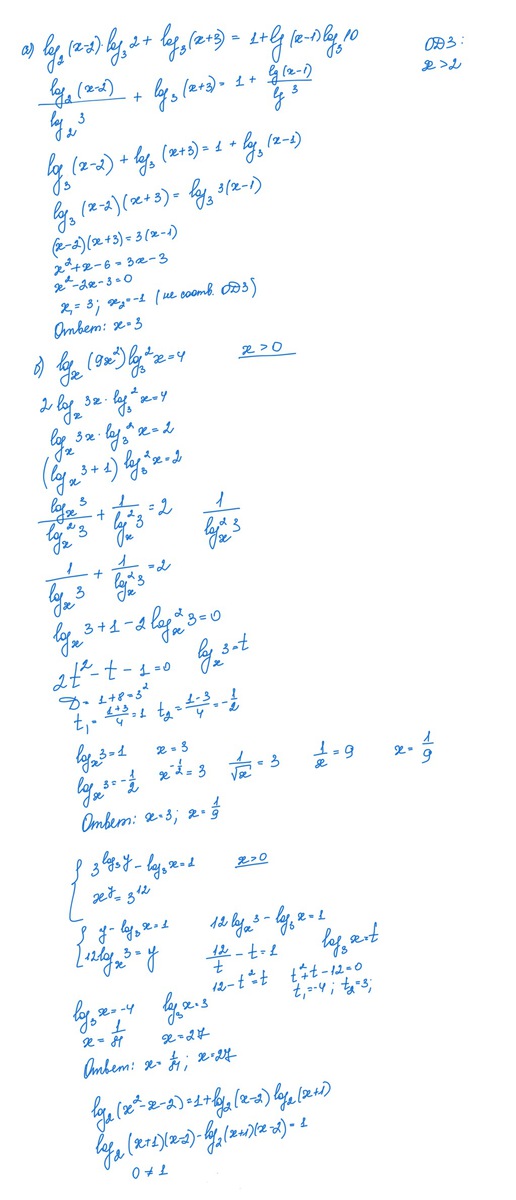 а) log₂(x-2)·log₃2 + log₃(x+3) = 1+lg(x-1)log₃10 ОДЗ:
x>2
log₂(x-2)/log₂3 + log₃(x+3) = 1 + lg(x-1)/lg 3
log₃(x-2) + log₃(x+3) = 1 + log₃(x-1)
log₃(x-2)(x+3) = log₃3(x-1)
(x-2)(x+3) = 3(x-1)
x²+x-6 = 3x-3
x²-2x-3=0
x₁=3; x₂=-1 (не соотв. ОДЗ)
Ответ: x=3
б) logₓ(9x²)log₃²x=4 x>0
2logₓ3x·log₃²x=4
logₓ3x·log₃²x=2
(logₓ3+1)log₃²x=2
logₓ3/logₓ²3 + 1/logₓ²3 = 2 1/logₓ²3
1/logₓ3 + 1/logₓ²3 = 2
logₓ3+1-2logₓ²3=0
2t²-t-1=0 logₓ3=t
D=1+8=3²
t₁=(1+3)/4=1 t₂=(1-3)/4=-1/2
logₓ3=1 x=3
logₓ3=-1/2 x^(-1/2)=3 1/√x=3 1/x=9 x=1/9
Ответ: x=3; x=1/9
{ 3^(log₃y)-log₃x=1 x>0
x^y=3^12
{ y-log₃x=1 12logₓ3-log₃x=1
12logₓ3=y 12/t-t=1 log₃x=t
12-t²=t t²+t-12=0
t₁=-4; t₂=3;
log₃x=-4 log₃x=3
x=1/81 x=27
Ответ: x=1/81; x=27
log₂(x²-x-2)=1+log₂(x-2)log₂(x+1)
log₂(x+1)(x-2)-log₂(x+1)(x-2)=1
0≠1